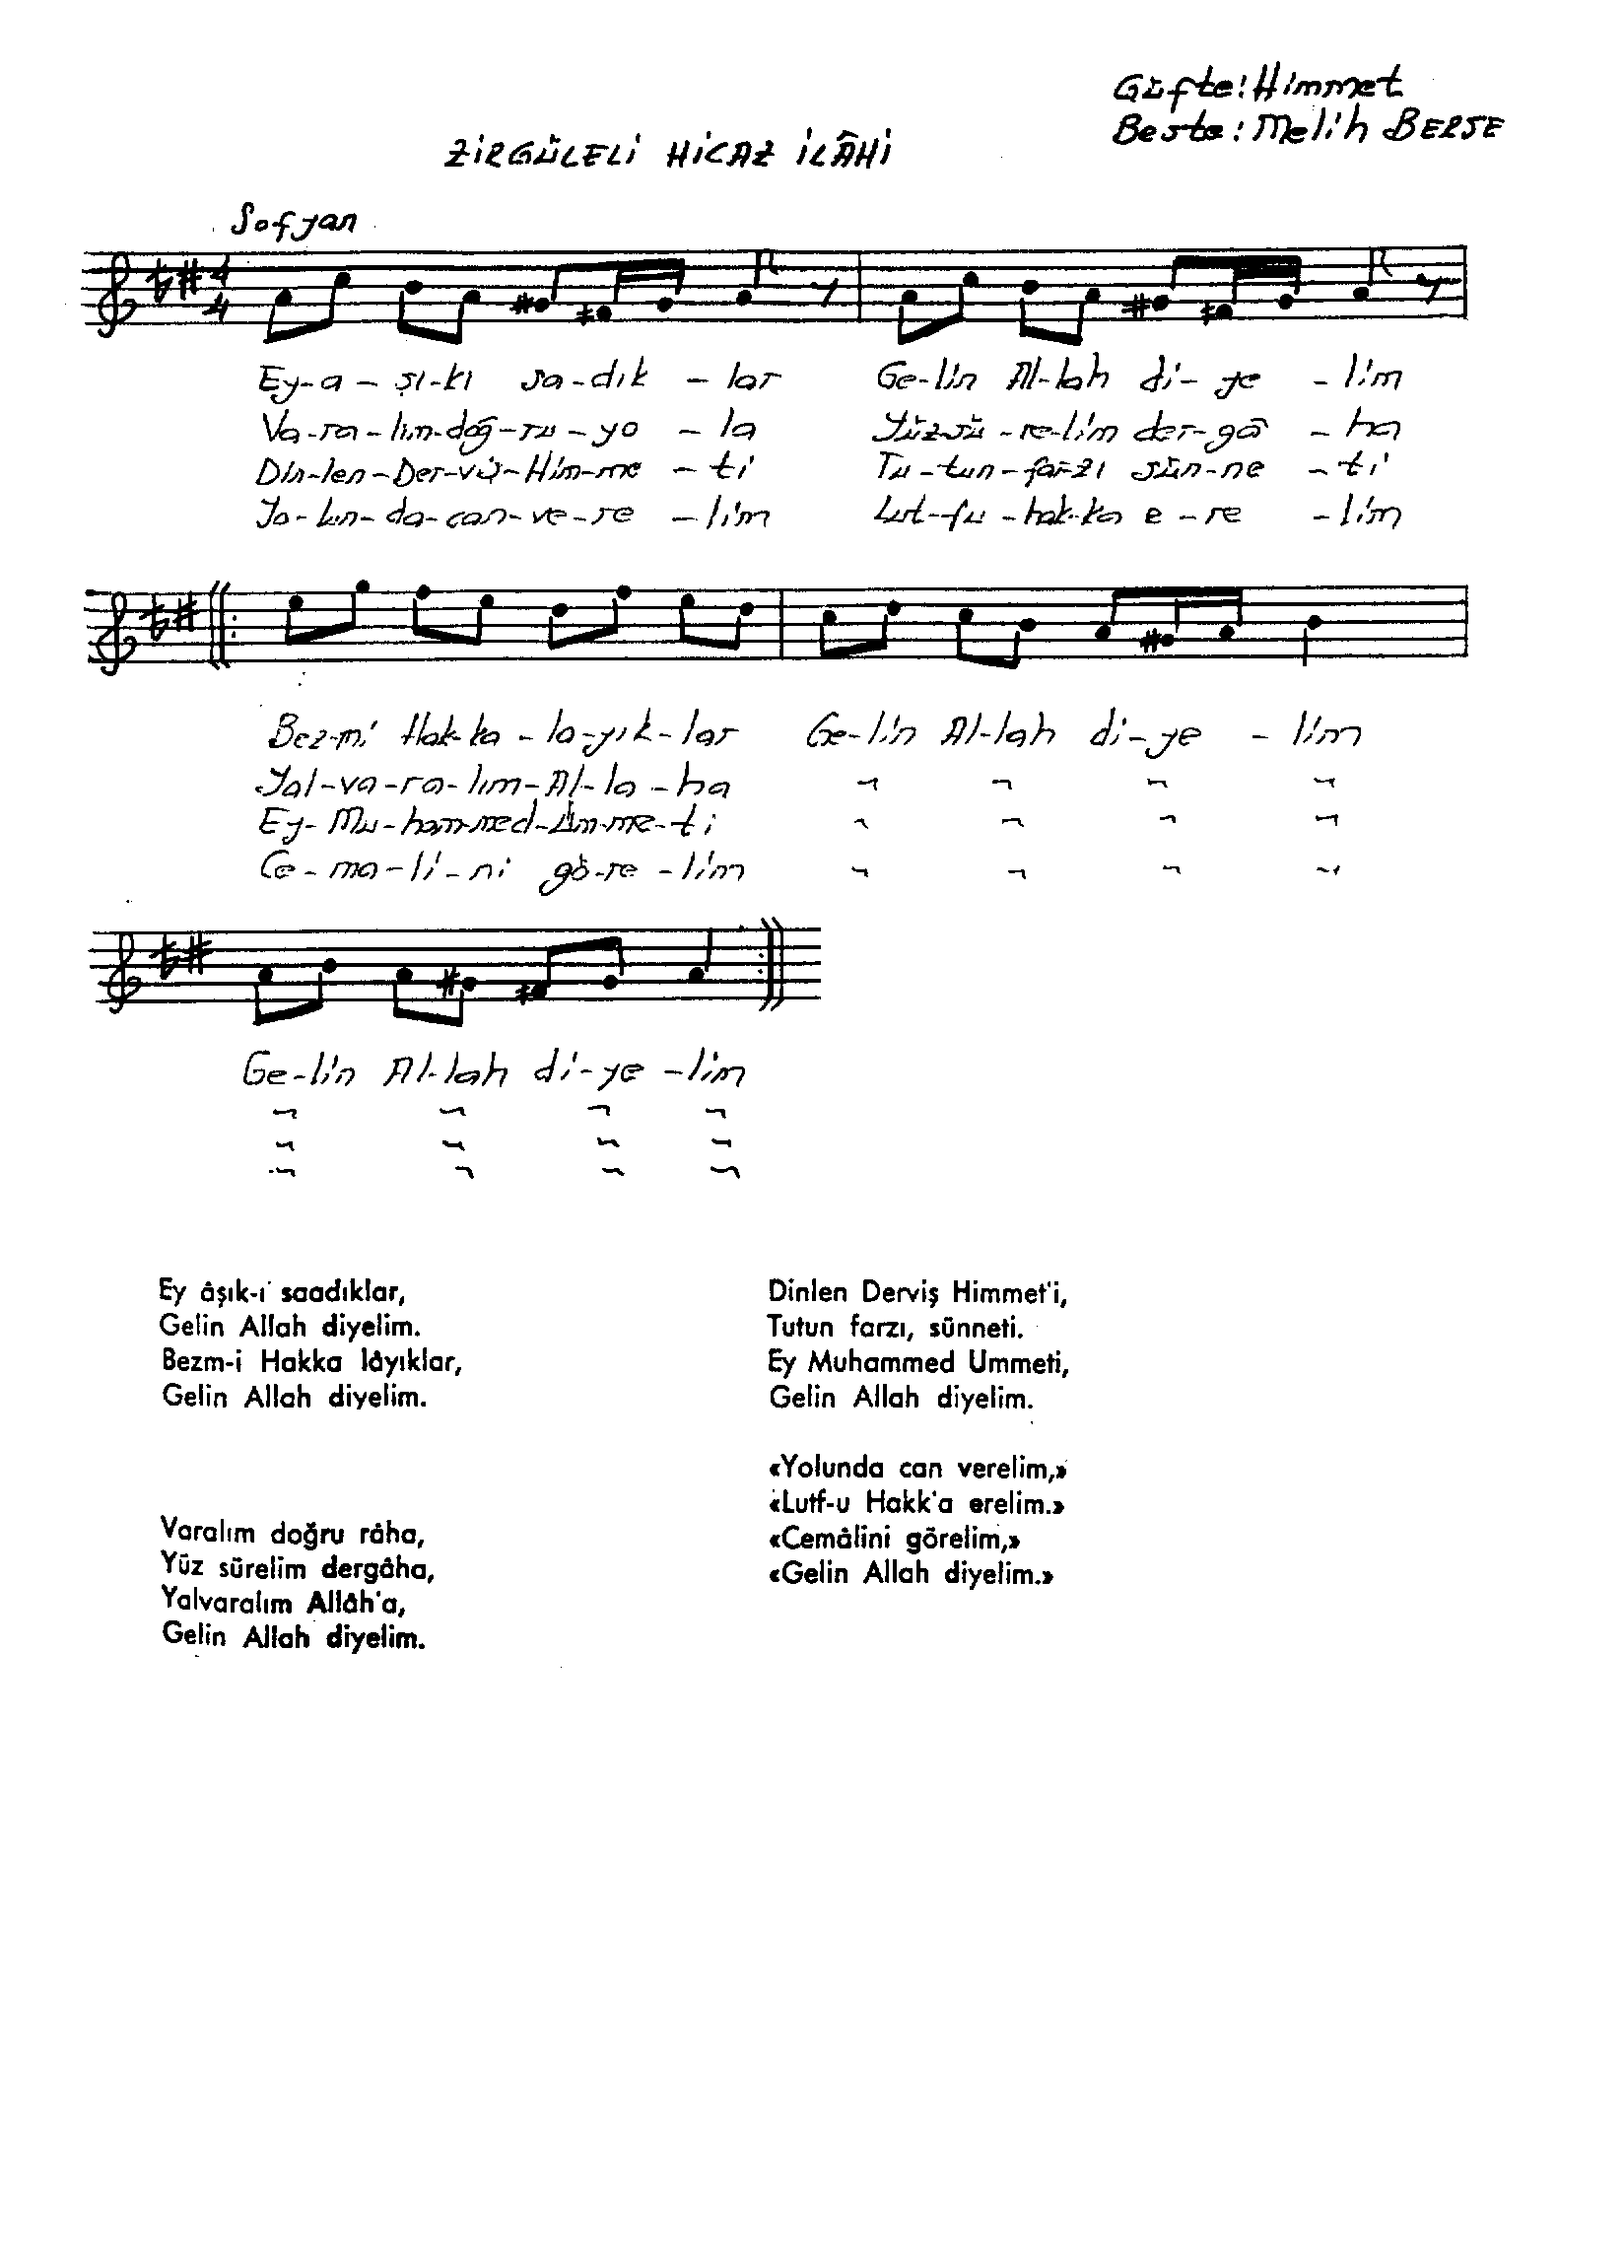 Güfte: Himmet
Beste: Melih BERSE
ZİRGÜLELİ HİCAZ İLÂHİ
Sofyan
4
4
Ey-a-şı-kı sa-dık-lar Ge-lin Al-lah di-ye-lim
Va-ra-lım-doğ-ru-yo-la Yüz-sü-re-lim der-gâ-ha
Din-len-Der-viş-Him-me-ti Tu-tun-far-zı sün-ne-ti
Yo-lun-da-can-ve-re-lim Lut-fu-hak-ka e-re-lim
Bez-mi Hak-ka-la-yık-lar Ge-lin Al-lah di-ye-lim
Yal-va-ra-lım-Al-la-ha
Ey-Mu-ham-med-Üm-me-ti
Ce-ma-li-ni gö-re-lim
Ge-lin Al-lah di-ye-lim
Ey âşık-ı saadıklar,
Gelin Allah diyelim.
Bezm-i Hakka lâyıklar,
Gelin Allah diyelim.
Varalım doğru râha,
Yüz sürelim dergâha,
Yalvaralım Allâh'a,
Gelin Allah diyelim.
Dinlen Derviş Himmet'i,
Tutun farzı, sünneti.
Ey Muhammed Ummeti,
Gelin Allah diyelim.
«Yolunda can verelim,»
«Lutf-u Hakk'a erelim.»
«Cemâlini görelim,»
«Gelin Allah diyelim.»